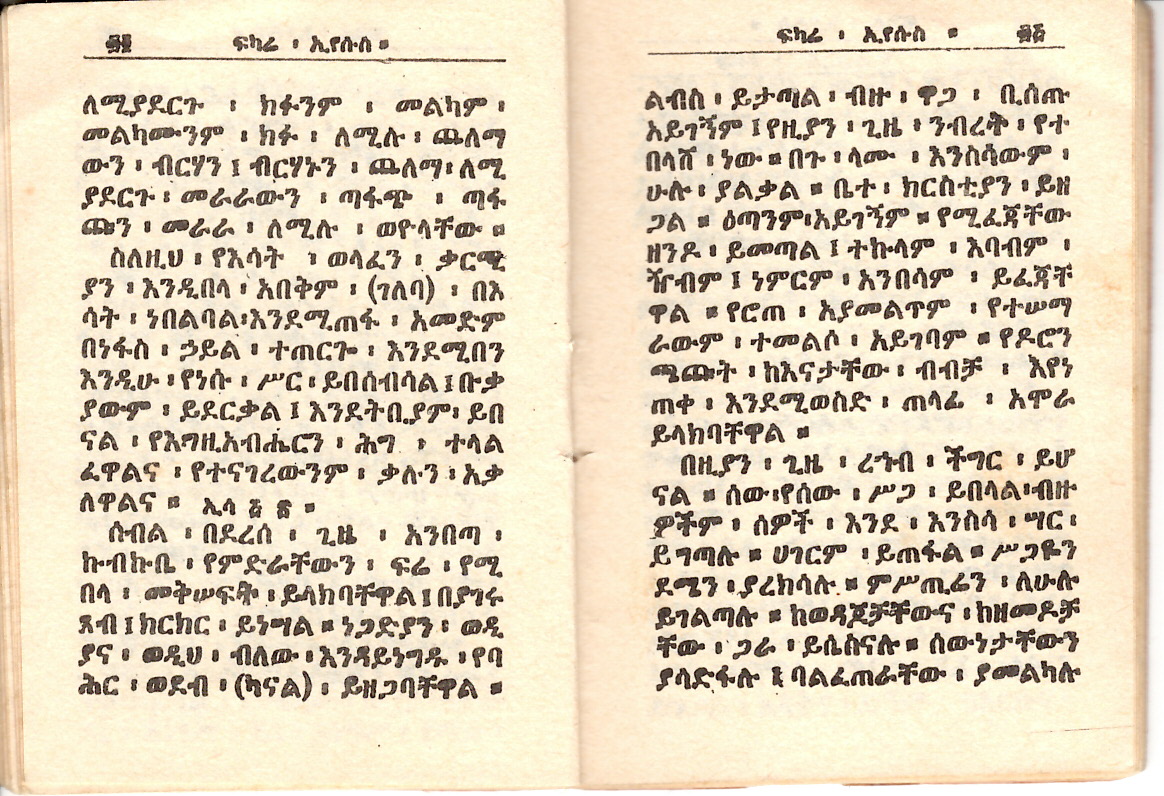 ፶፬ ፍካሬ ፡ ኢየሱስ ።
ለሚያደርጉ ፡ ክፉንም ፡ መልካም ፡
መልካሙንም ፡ ክፉ ፡ ለሚሉ ፡ ጨለማ
ውን ፡ ብርሃን ፤ ብርሃኑን ፡ ጨለማ፡ ለሚ
ያደርጉ ፡ መራራውን ፡ ጣፋጭ ፡ ጣፋ
ጩን ፡ መራራ ፡ ለሚሉ ፡ ወዮላቸው ።
ስለዚህ ፡ የእሳት ፡ ወላፈን ፡ ቃርሚ
ያን ፡ እንዲበላ ፡ አበቅም ፡ (ገለባ) ፡ በእ
ሳት ፡ ነበልባል፡እንደሚጠፋ ፡ አመድም
በነፋስ ፡ ኃይል ፡ ተጠርጎ ፡ እንደሚበን
እንዲሁ ፡ የነሱ ፡ ሥር ፡ ይበሰብሳል ፤ ቡቃ
ያውም ፡ ይደርቃል ፤ እንደትቢያም፡ ይበ
ናል ፡ የእግዚአብሔርን ፡ ሕግ ፡ ተላል
ፈዋልና ፡ የተናገረውንም ፡ ቃሉን ፡ አቃ
ለዋልና ። ኢሳ ፭ ፳ ።
ሰብል ፡ በደረሰ ፡ ጊዜ ፡ አንበጣ ፡
ኩብኩቤ ፡ የምድራቸውን ፡ ፍሬ ፡ የሚ
በላ ፡ መቅሠፍት ፡ ይላክባቸዋል ፤ በያገሩ
ጸብ ፤ ክርክር ፡ ይነግሣል ። ነጋድያን ፡ ወዲ
ያና ፡ ወዲህ ፡ ብለው ፡ እንዳይነግዱ ፡ የባ
ሕር ፡ ወደብ ፡ (ካናል) ፡ ይዘጋባቸዋል ።
ፍካሬ ፡ ኢየሱስ ። ፶፭
ልብስ ፡ ይታጣል ፡ ብዙ ፡ ዋጋ ፡ ቢሰጡ
አይገኝም ፤ የዚያን ፡ ጊዜ ፡ ንብረቱ ፡ የተ
በላሸ ፡ ነው ። በጉ ፡ ላሙ ፡ እንስሳውም ፡
ሁሉ ፡ ያልቃል ። ቤተ ፡ ክርስቲያን ፡ ይዘ
ጋል ። ዕጣንም፡አይገኝም ። የሚፈጃቸው
ዘንዶ ፡ ይመጣል ፤ ተኩላም ፡ እባብም ፡
ዥብም ፤ ነምርም ፡ አንበሳም ፡ ይፈጃቸ
ዋል ። የሮጠ ፡ አያመልጥም ፡ የተሠማ
ራውም ፡ ተመልሶ ፡ አይገባም ። የዶሮን
ጫጩት ፡ ከእናታቸው ፡ ብብቻ ፡ እየነ
ጠቀ ፡ እንደሚወስድ ፡ ጠላፊ ፡ አሞራ
ይላክባቸዋል ።
በዚያን ፡ ጊዜ ፡ ረኀብ ፡ ችግር ፡ ይሆ
ናል ። ሰው፡የሰው ፡ ሥጋ ፡ ይበላል፡ብዙ
ዎችም ፡ ሰዎች ፡ እንደ ፡ እንስሳ ፡ ሣር ፡
ይግጣሉ ። ሀገርም ፡ ይጠፋል ። ሥጋዬን
ደሜን ፡ ያረክሳሉ ። ምሥጢሬን ፡ ለሁሉ
ይገልጣሉ ። ከወዳጆቻቸውና ፡ ከዘመዶቻ
ቸው ፡ ጋራ ፡ ይሴስናሉ ። ሰውነታቸውን
ያሳድፋሉ ፤ ባልፈጠራቸው ፡ ያመልካሉ